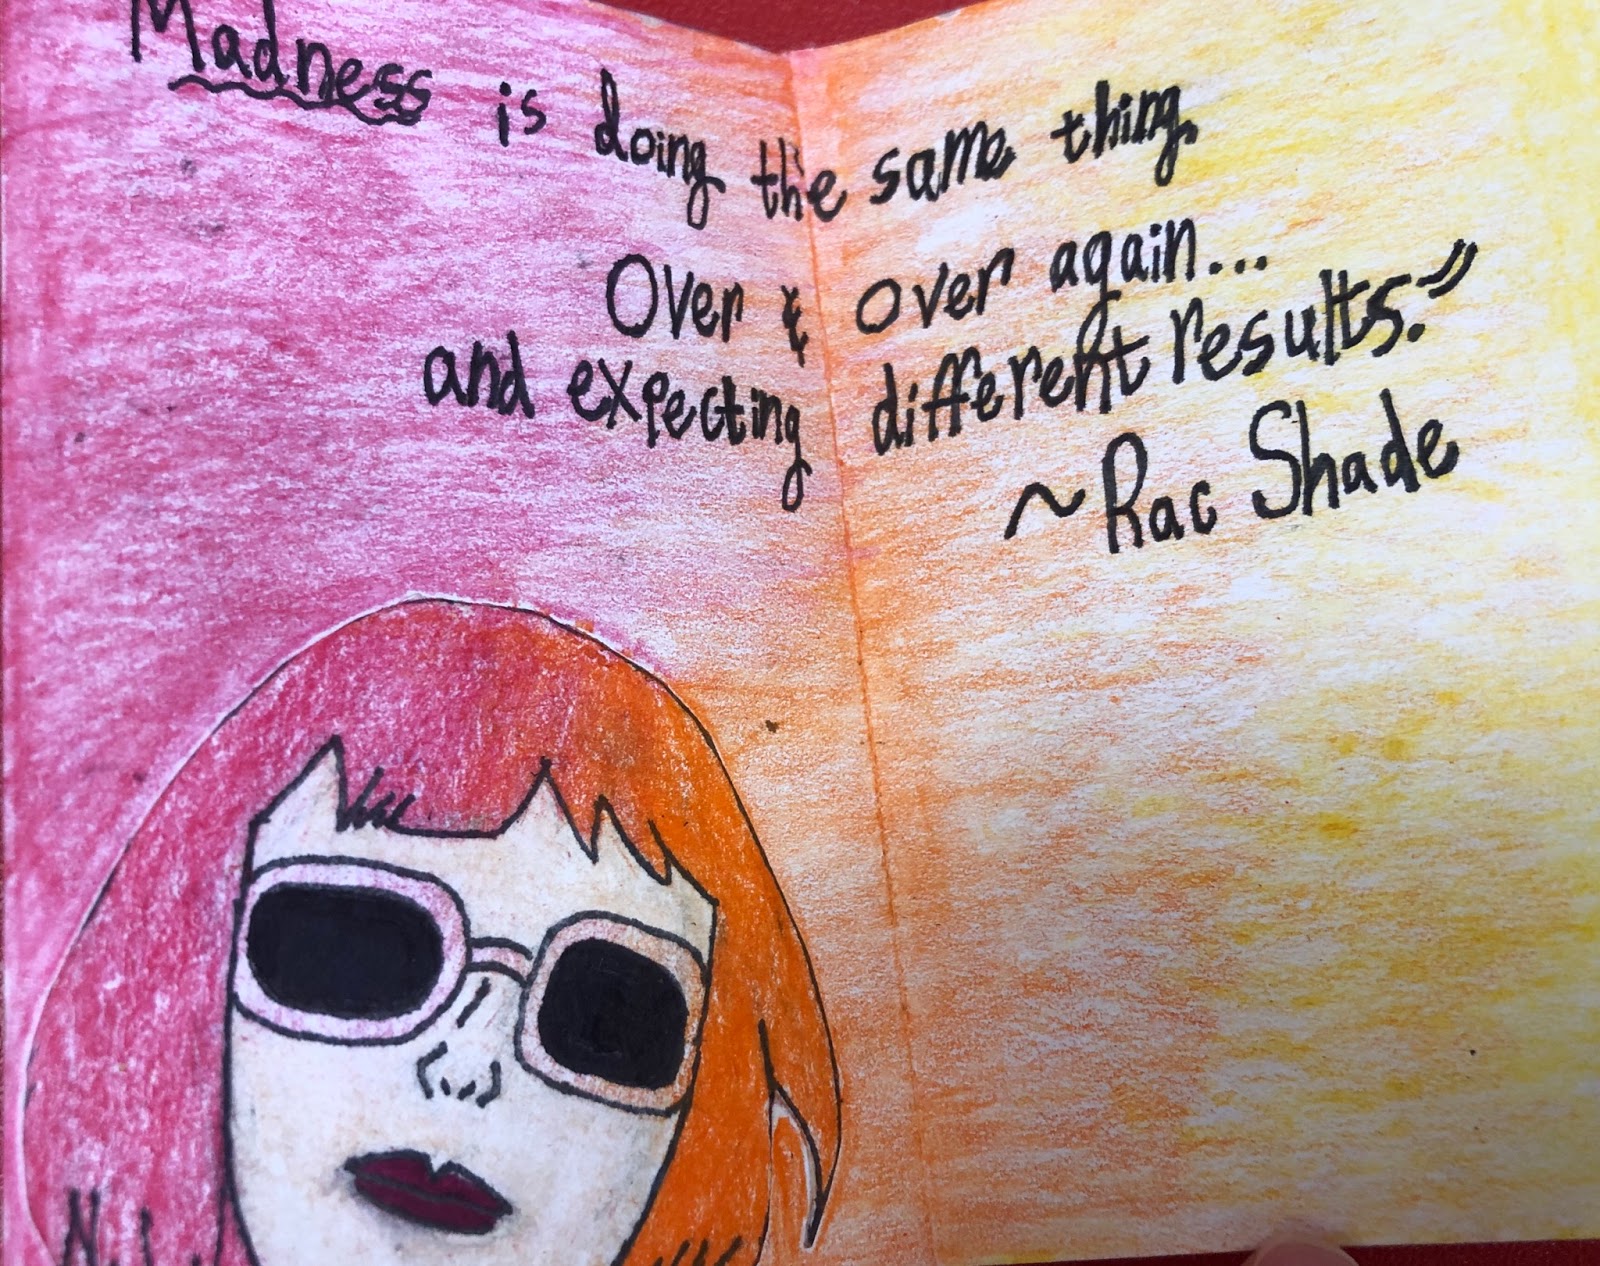 Madness is doing the same thing.
Over & over again...
and expecting different results."
~Rac Shade